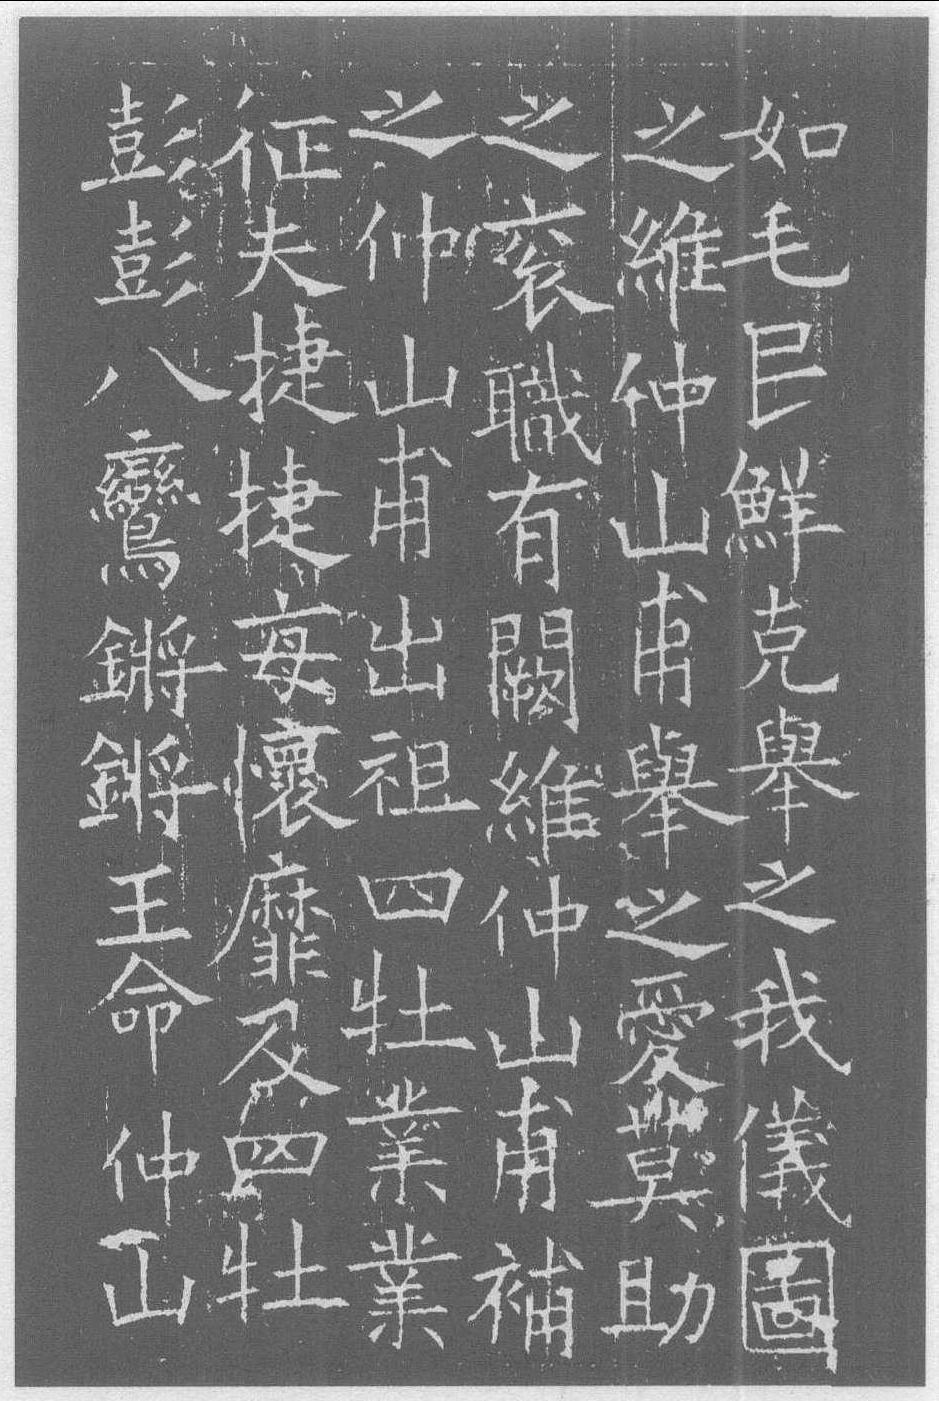 如毛民鮮克舉之我儀圖
之維仲山甫舉之愛莫助
之衮職有闕維仲山甫補
之仲山甫出祖四牡業業
征夫捷捷每懷靡及四牡
彭彭八鸞鏘鏘王命仲山